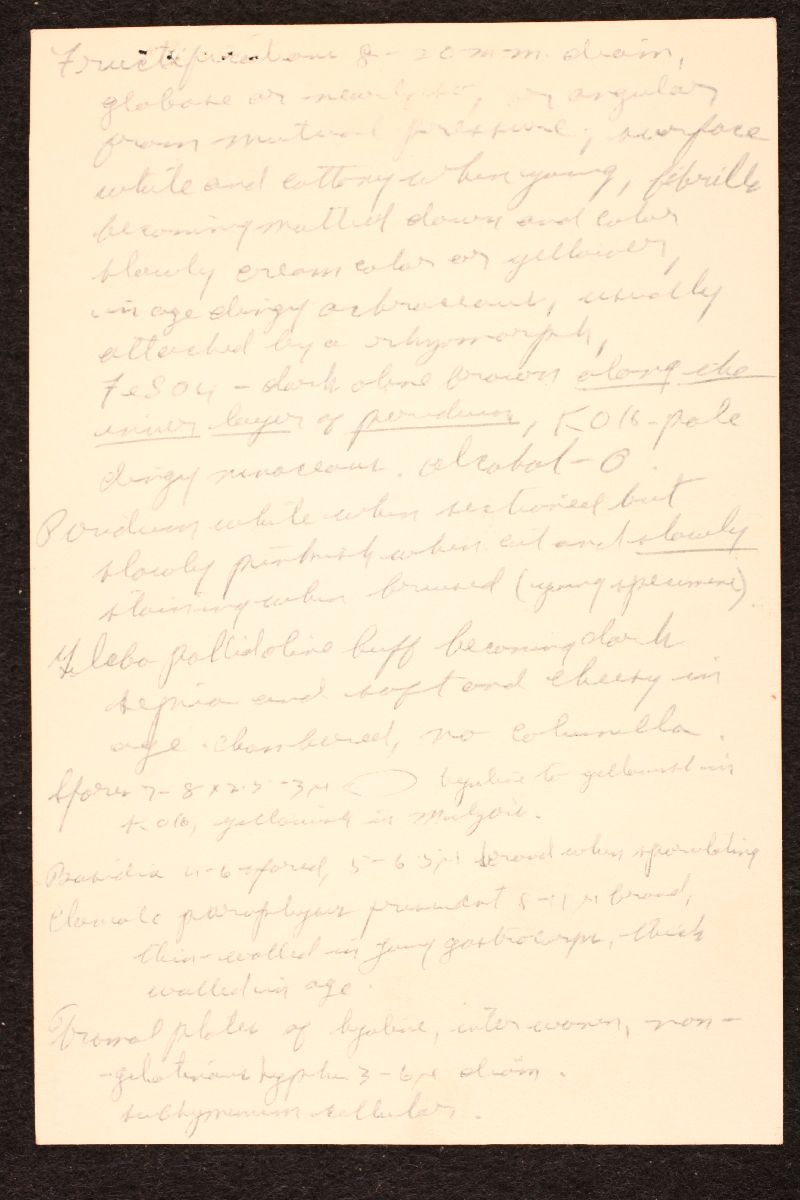 Fructifications 8-20 m.m. diam,
globose or nearly so, or angular
from mutual pressure, surface
white and cottony when young, fibrills
becoming matted down and color
slowly cream color or yellower,
in age dingy ochraceous, usually
attached by a rhyzomorph,
FeSO4 - dark olive brown along the
inner layer of peridium, KOH - pale
dingy vinaceous. alcohol - 0.
Peridium white when sectioned but
slowly pinkish when cut and slowly
staining when bruised (young specimens).
Gleba pallid olive buff becoming dark
sepia and soft and cheesy in
age chambered, no columella.
Spores 7-8 x 2.5-3µ hyaline to yellowish in
KOH, yellowish in Melzois.
Basidia 4-6-spored, 5-6.5µ broad when sporulating
Clavate paraphyses present 8-11µ broad,
thin-walled in young gastrocarps, thick
walled in age.
Tramal plates of hyaline, interwoven, non-
-gelatinous hyphae 3-6µ diam.
subhymenium cellular.